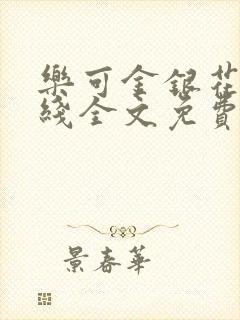 樂可金銀花
綫全文免費
景春華